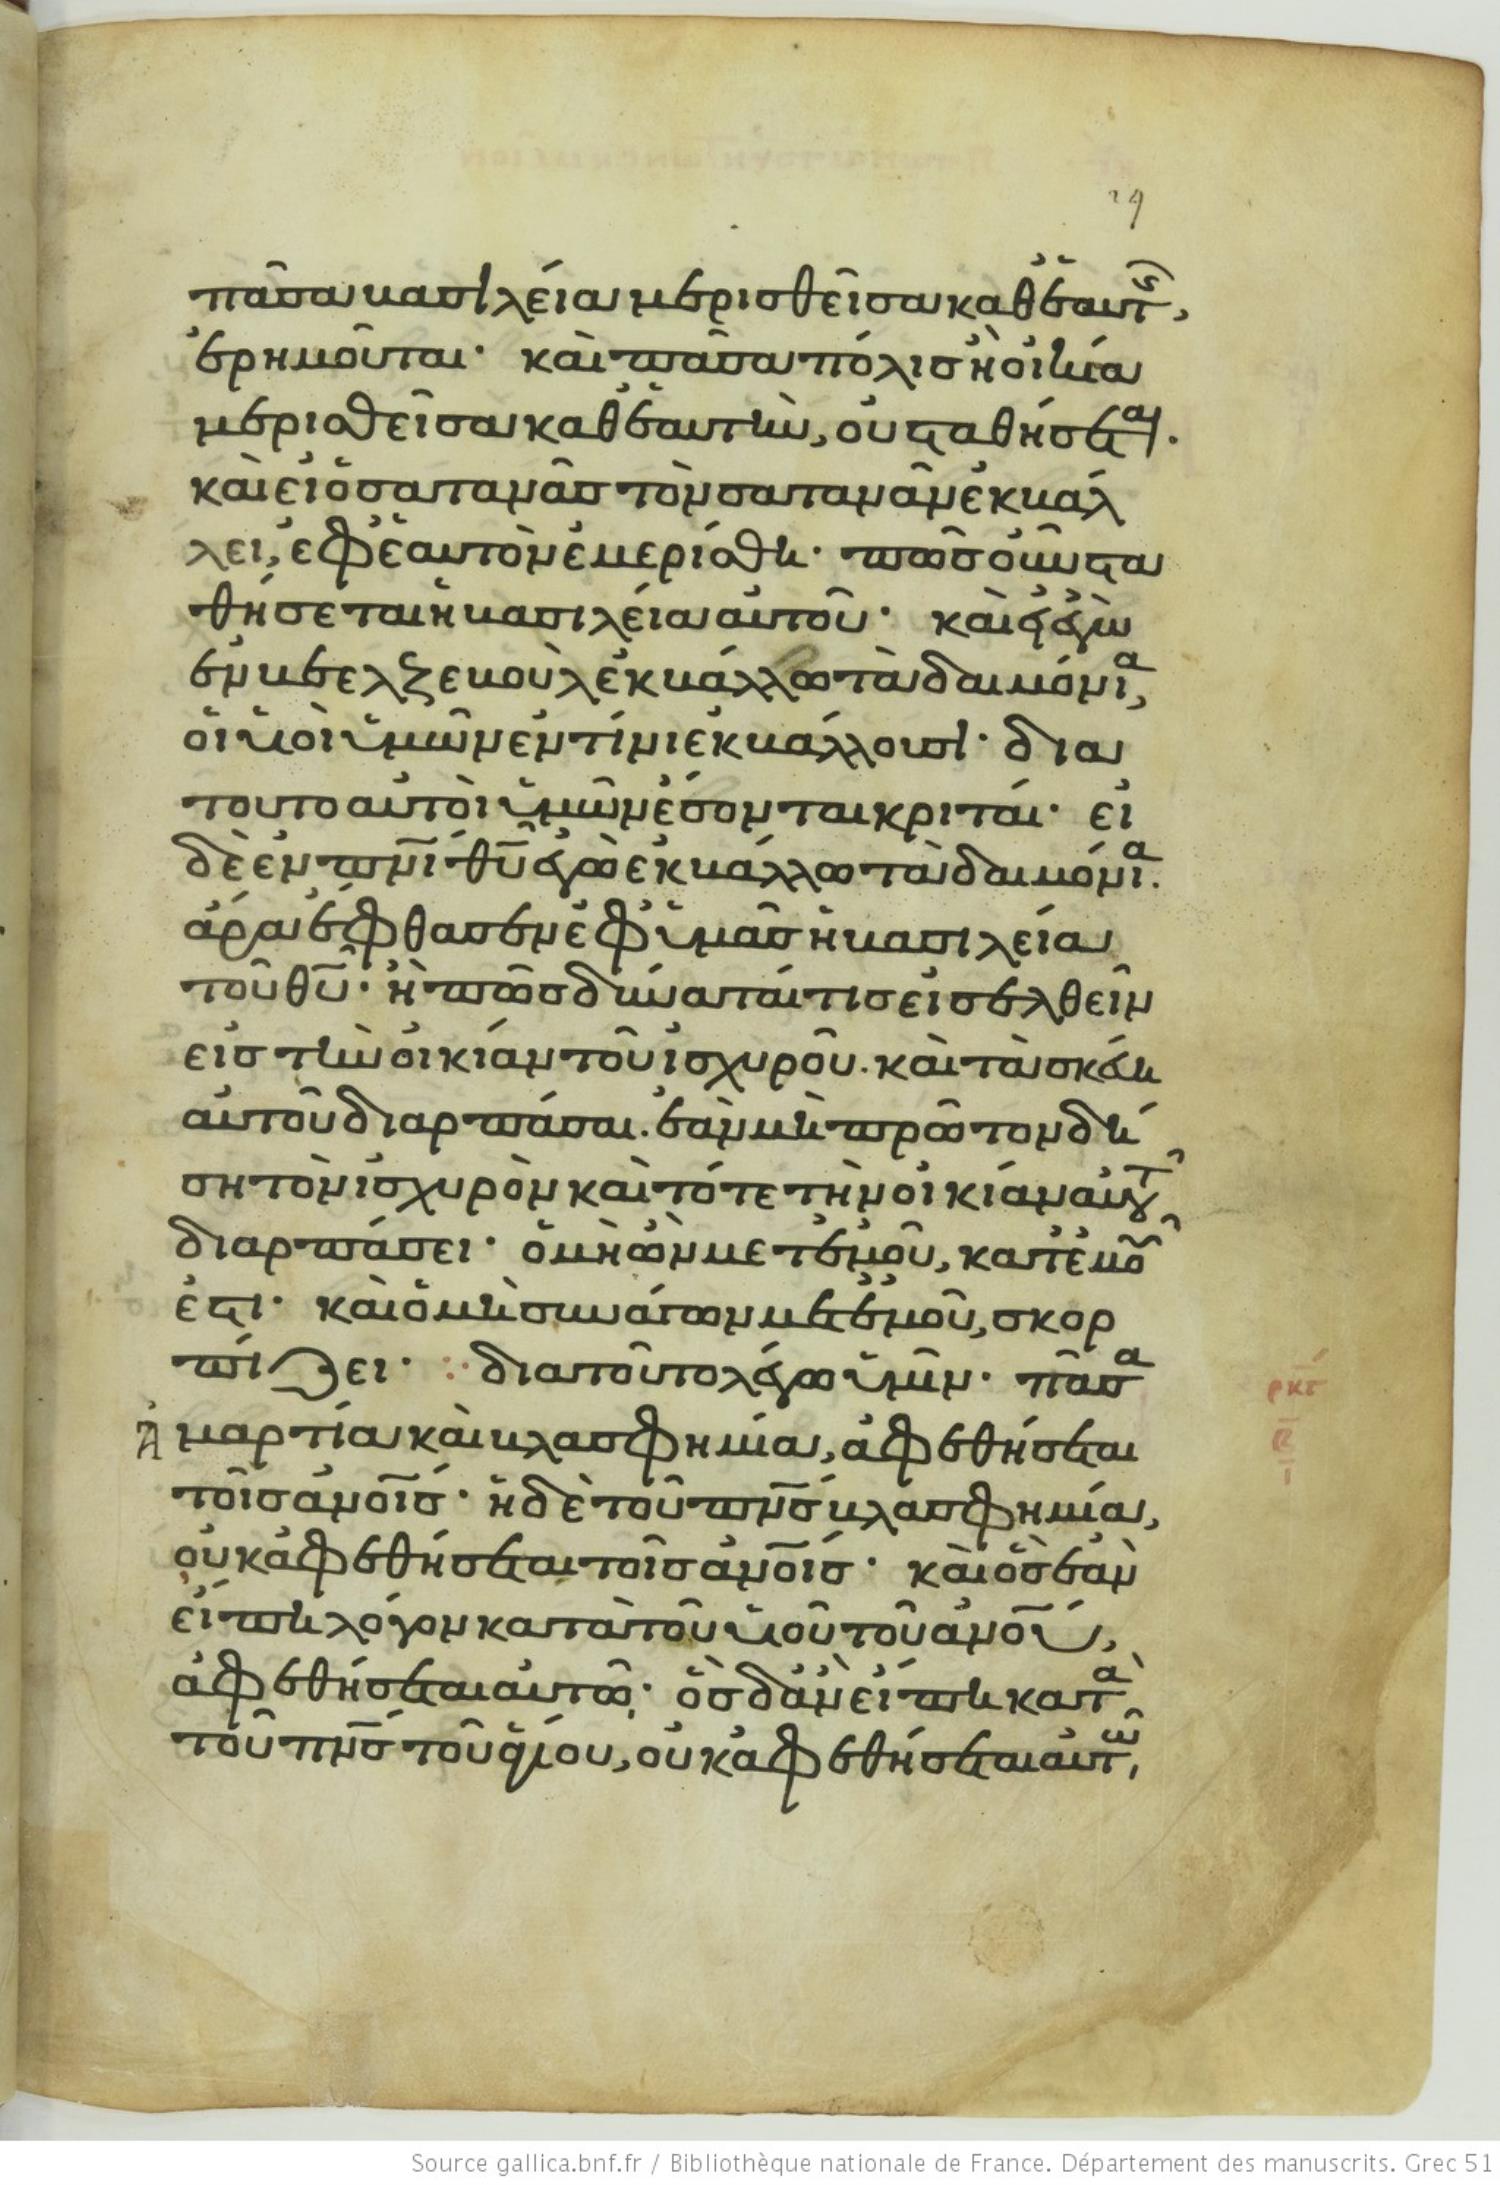 29
πᾶσα βασιλεία μερισθεῖσα καθ' ἑαυτῆς,
ἐρημοῦται· καὶ πᾶσα πόλις ἢ οἰκία
μερισθεῖσα καθ' ἑαυτὴν, οὐ σταθήσεται.
καὶ εἰ ὁ σατανᾶς τὸν σατανᾶν ἐκβάλ
λει, ἐφ' ἑαυτὸν ἐμερίσθη· πῶς οὖν στα
θήσεται ἡ βασιλεία αὐτοῦ· καὶ εἰ ἐγὼ
ἐν βεελζεβοὺλ ἐκβάλλω τὰ δαιμόνια,
οἱ υἱοὶ ὑμῶν ἐν τίνι ἐκβάλλουσι· δια
τουτο αὐτοὶ ὑμῶν ἔσονται κριταί· εἰ
δὲ ἐν πνι θυ ἐγὼ ἐκβάλλω τὰ δαιμόνια.
ἄρα ἔφθασεν ἐφ' ὑμᾶς ἡ βασιλεία
τοῦ θυ· ἢ πῶς δύναταί τις εἰσελθεῖν
εἰς τὴν οἰκίαν τοῦ ἰσχυροῦ. καὶ τὰ σκεύη
αὐτοῦ διαρπάσαι. ἐὰν μὴ πρῶτον δή
ση τὸν ἰσχυρὸν καὶ τότε τὴν οἰκίαν αὐτοῦ
διαρπάσει· ὁ μὴ ὢν μετ' ἐμοῦ, κατ' ἐμοῦ
ἐστι· καὶ ὁ μὴ συνάγων μετ' ἐμοῦ, σκορ
πίζει· διατοῦτο λέγω ὑμῖν· πᾶσα
ἁμαρτία καὶ βλασφημία, ἀφεθήσεται
τοῖς ἀνοις· ἡ δὲ τοῦ πνς βλασφημία,
οὐκ ἀφεθήσεται τοῖς ἀνοις· καὶ ὃς ἐὰν
εἴπη λόγον κατὰ τοῦ υἱοῦ τοῦ ἀνου,
ἀφεθήσεται αὐτῶ· ὃς δ' ἂν εἴπη κατὰ
τοῦ πνς τοῦ ἁγίου, οὐκ ἀφεθήσεται αὐτῶ,
Source gallica.bnf.fr / Bibliothèque nationale de France. Département des manuscrits. Grec 51